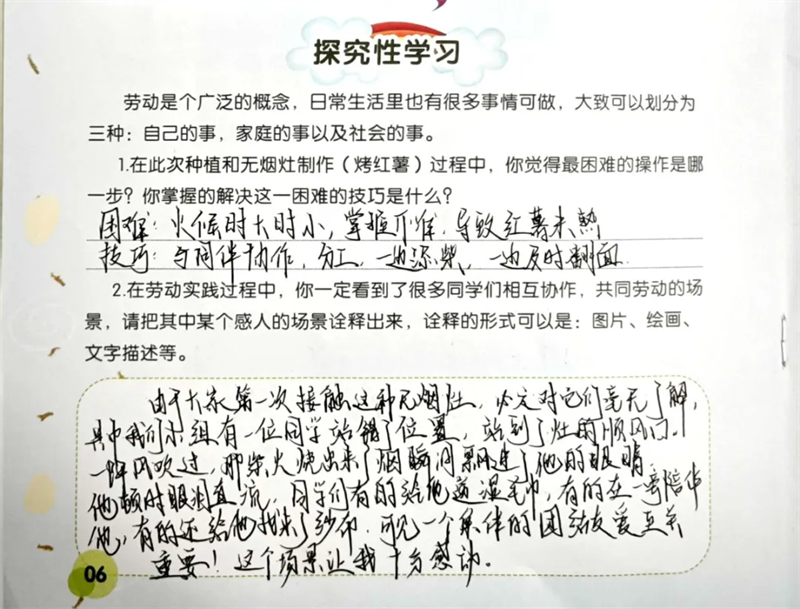 探究性学习
劳动是个广泛的概念，日常生活里也有很多事情可做，大致可以划分为
三种：自己的事，家庭的事以及社会的事。
1.在此次种植和无烟灶制作（烤红薯）过程中，你觉得最困难的操作是哪
一步？你掌握的解决这一困难的技巧是什么？
困难：火候时大时小，掌握不准，导致红薯未熟
技巧：与同伴协作，分工，一边添柴，一边及时翻面.
2.在劳动实践过程中，你一定看到了很多同学们相互协作，共同劳动的场
景，请把其中某个感人的场景诠释出来，诠释的形式可以是：图片、绘画、
文字描述等。
由于大家第一次接触这种无烟灶，必定对它们毫无了解，
其中我们小组有一位同学站错了位置，站到了灶的顺风口.
一阵风吹过，那柴火烧出来了烟瞬间飘进了他的眼睛.
他顿时眼泪直流，同学们有的给他递湿毛巾，有的在一旁陪伴
他，有的还给他找来了纱布.可见一个集体的团结友爱至关
重要！这个场景让我十分感动。
06